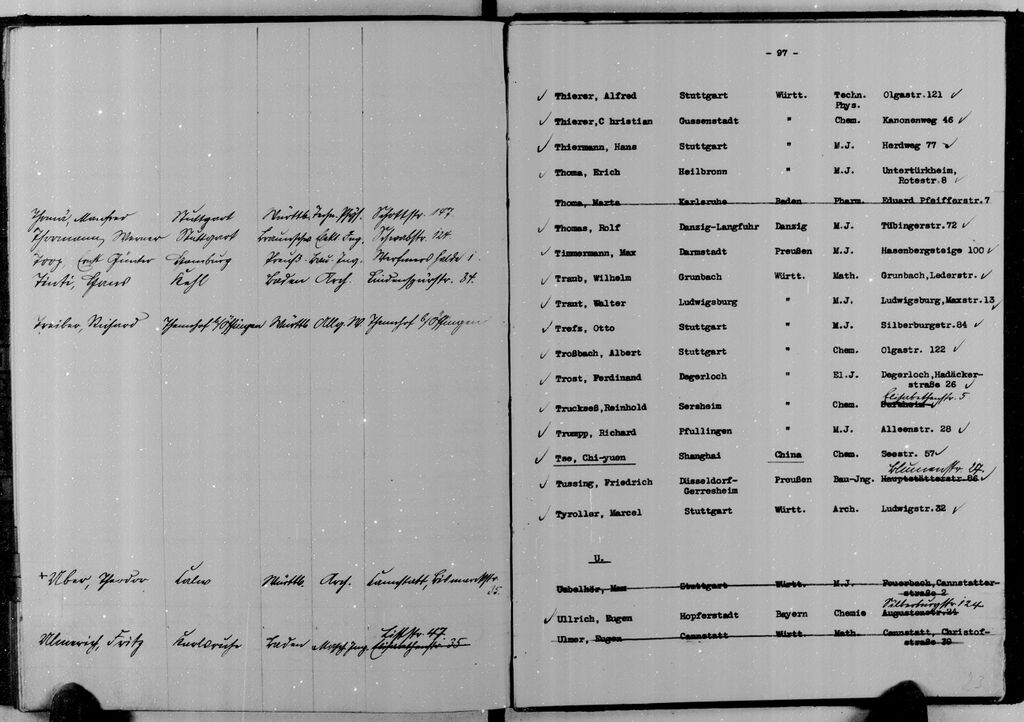 Thomä, Manfred Stuttgart Württb. Techn. Phys. Schottstr. 147
Thormann, Werner Stuttgart Braunschw. Elekt. Ing. Schwabstr. 124
Toop, Ernst Günter Hamburg Preuß. Bau. Ing. Werfmershalde 1.
Tinti, Hans Kehl Baden Arch. Lindenspürstr. 34.
Treiber, Richard Öffingen Württb. Allg. W. Öffingen
+ Uber, Theodor Calw Württb. Arch. Cannstatt, Bismarckstr.
35.
Ulmerich, Fritz Karlsruhe Baden Masch. Ing. Liststr. 47.
Elisabethenstr. 35
- 97 -
✓ Thierer, Alfred Stuttgart Württ. Techn. Olgastr.121 ✓
Phys.
✓ Thierer,C hristian Gussenstadt " Chem. Kanonenweg 46 ✓
✓ Thiermann, Hans Stuttgart " M.J. Herdweg 77 ✓
✓ Thoma, Erich Heilbronn " M.J. Untertürkheim,
Rotestr.8 ✓
Thoma, Marta Karlsruhe Baden Pharm. Eduard Pfeifferstr.7
✓ Thomas, Rolf Danzig-Langfuhr Danzig M.J. Tübingerstr.72 ✓
✓ Timmermann, Max Darmstadt Preußen M.J. Hasenbergsteige 100 ✓
✓ Traub, Wilhelm Grunbach Württ. Math. Grunbach,Lederstr. ✓
✓ Traut, Walter Ludwigsburg " M.J. Ludwigsburg,Maxstr.13 ✓
✓ Trefz, Otto Stuttgart " M.J. Silberburgstr.84 ✓
✓ Troßbach, Albert Stuttgart " Chem. Olgastr. 122 ✓
✓ Trost, Ferdinand Degerloch " El.J. Degerloch,Hadäcker-
straße 26 ✓
Elisabethenstr. 5
✓ Truckseß,Reinhold Sersheim " Chem. Sersheim ✓
✓ Trumpp, Richard Pfullingen " M.J. Alleenstr. 28 ✓
✓ Tse, Chi-yuen Shanghai China Chem. Seestr. 57 ✓
Blumenstr. 27
✓ Tussing, Friedrich Düsseldorf- Preußen Bau-Jng. Hauptstätterstr.86 ✓
Gerresheim
✓ Tyroller, Marcel Stuttgart Württ. Arch. Ludwigstr.32 ✓
U.
Uebelhör, Max Stuttgart Württ. M.J. Feuerbach,Cannstatter-
straße 2
Silberburgstr. 124
✓ Ullrich, Eugen Hopferstadt Bayern Chemie Augustenstr.24
Ulmer, Eugen Cannstatt Württ. Math. Cannstatt, Christof-
straße 39
23